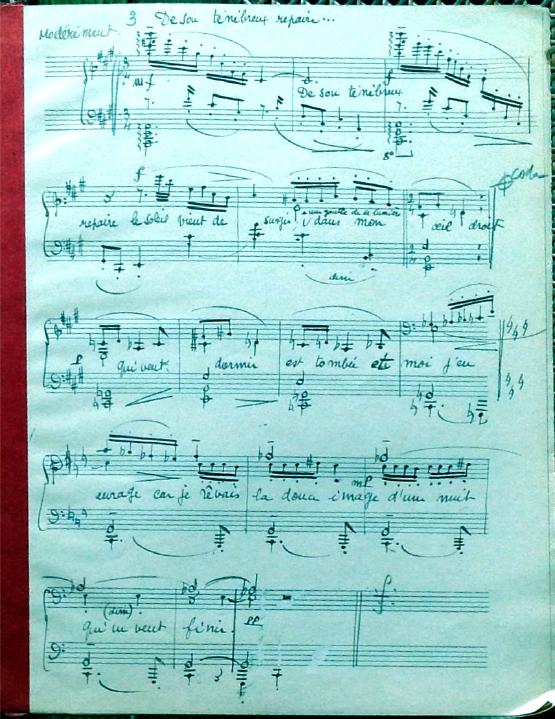 3 De son ténébreux repaire...
Modérément
mf f
De son ténébreux
8º
f Coda
repaire le soleil vient de surgi une goutte de sa lumière dans mon œil droit
dim
p qui veut dormir est tombée et moi j'en
enrage car je rêvais la douce image d'une nuit
mp
(dim) pp f
qui ne veut finir.